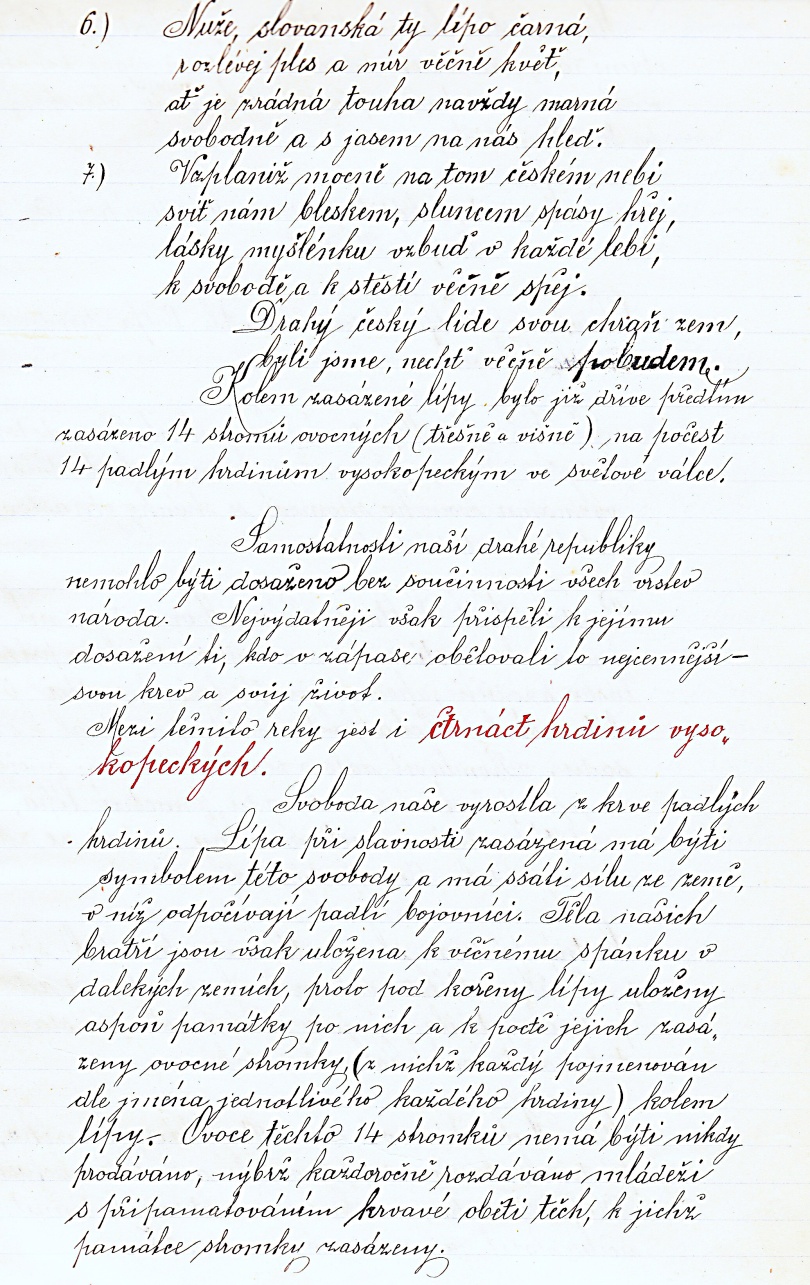 6.) Nuže, slovanská ty lípo čarná,
rozlévej ples a mír věčně květ,
ať je zrádná touha navždy marná
svobodně a s jasem na nás hleď.
7.) Vzplaniž mocně na tom českém nebi
sviť nám bleskem, sluncem spásy hřej,
lásky myšlénku vzbuď v každé lebi,
k svobodě a k stěstí věčně spěj.
Drahý český lide svou chraň zem,
byli jsme, nechť věčně pobudem.
Kolem zasázené lípy bylo již dříve předtím
zasázeno 14 stromů ovocných (třešně a višně) na počest
14 padlým hrdinům vysokopeckým ve světové válce.
Samostatnosti naší drahé republiky
nemohlo býti dosaženo bez součinnosti všech vrstev
národa. Nejvýdatněji však přispěli k jejímu
dosažení ti, kdo v zápase obětovali to nejcennější –
svou krev a svůj život.
Mezi těmito reky jest i čtrnáct hrdinů vyso„
kopeckých.
Svoboda naše vyrostla z krve padlých
hrdinů. Lípa při slavnosti zasázená má býti
symbolem této svobody a má ssáti sílu ze země,
v níž odpočívají padlí bojovníci. Těla našich
bratří jsou však uložena k věčnému spánku v
dalekých zemích, proto pod kořeny lípy uloženy
aspoň památky po nich a k poctě jejich zasá„
zeny ovocné stromky, (z nichž každý pojmenován
dle jména jednotlivého každého hrdiny) kolem
lípy. Ovoce těchto 14 stromků nemá býti nikdy
prodáváno, nýbrž každoročně rozdáváno mládeži
s připamatováním krvavé oběti těch, k jichž
památce stromky zasázeny.